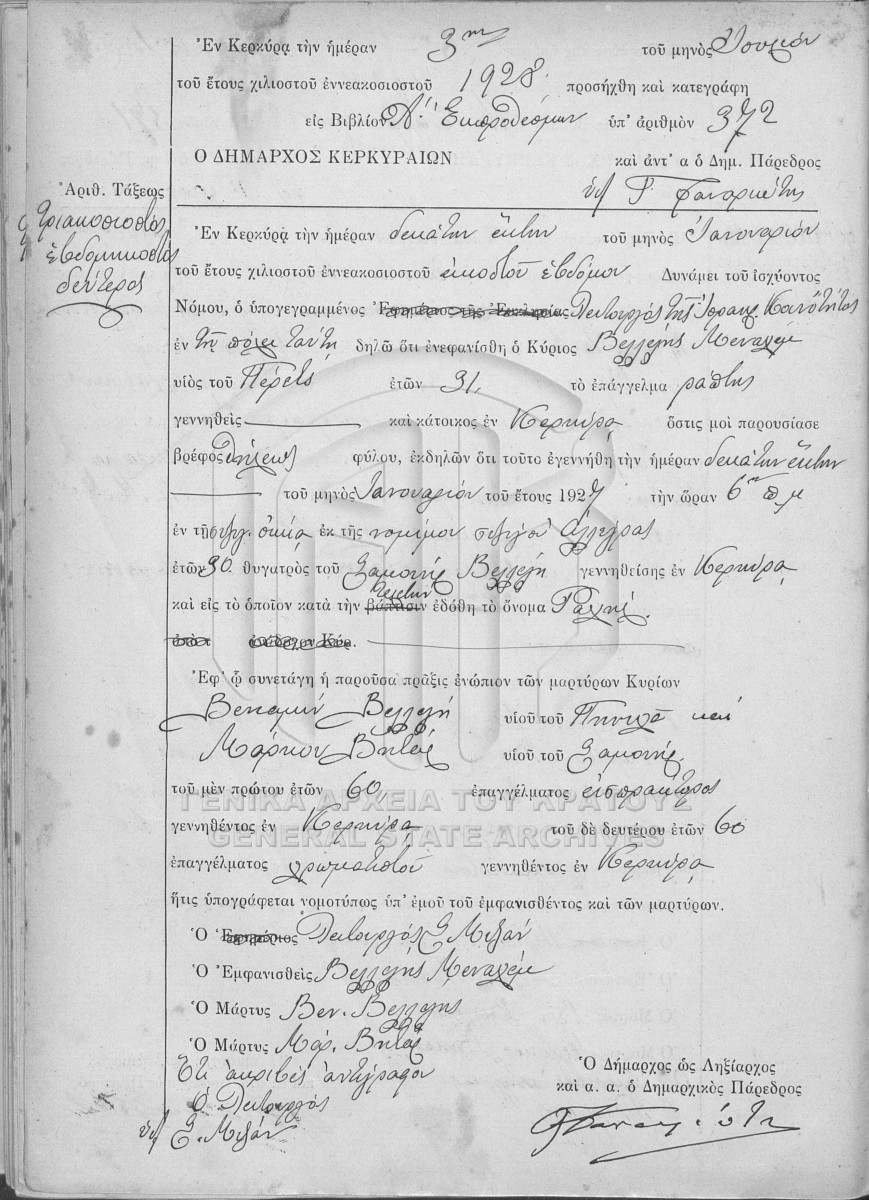 Ἐν Κερκύρᾳ τὴν ἡμέραν 3ην τοῦ μηνὸς
τοῦ ἔτους χιλιοστοῦ ἐννεακοσιοστοῦ 1928 προσήχθη καὶ κατεγράφη
εἰς Βιβλίον Α΄. Ἐκπροθέσμων ὑπ' ἀριθμὸν 372
Ο ΔΗΜΑΡΧΟΣ ΚΕΡΚΥΡΑΙΩΝ καὶ ἀντ' α ὁ Δημ. Πάρεδρος
Ἀριθ. Τάξεως
τριακοσιοστὸς
ἑβδομηκοστὸς
δεύτερος
Ἐν Κερκύρᾳ τὴν ἡμέραν δεκάτην ἕκτην τοῦ μηνὸς Ἰανουαρίου
τοῦ ἔτους χιλιοστοῦ ἐννεακοσιοστοῦ εἰκοστοῦ ἑβδόμου Δυνάμει τοῦ ἰσχύοντος
Νόμου, ὁ ὑπογεγραμμένος Ἐφημέριος τῆς Ἐκκλησίας Λειτουργὸς τῆς Ἰσραηλ. Κοινότητος
ἐν τῇ πόλει ταύτῃ δηλῶ ὅτι ἐνεφανίσθη ὁ Κύριος Βελλέλης Μεναχὲμ
υἱὸς τοῦ Πέρετς ἐτῶν 31, τὸ ἐπάγγελμα ράπτης
γεννηθεὶς καὶ κάτοικος ἐν Κερκύρᾳ ὅστις μοὶ παρουσίασε
βρέφος θήλεος φύλου, ἐκδηλῶν ὅτι τοῦτο ἐγεννήθη τὴν ἡμέραν δεκάτην ἕκτην
τοῦ μηνὸς Ἰανουαρίου τοῦ ἔτους 1927 τὴν ὥραν 6ην π.μ
ἐν τῇ συζυγ. οἰκίᾳ ἐκ τῆς νομίμου συζύγου Ἀλλέγρας
ἐτῶν 30. θυγατρὸς τοῦ Σαμουὴλ Βελλέλη γεννηθείσης ἐν Κερκύρᾳ
καὶ εἰς τὸ ὁποῖον κατὰ τὴν βάπτισιν τελετὴν ἐδόθη τὸ ὄνομα Ραχὴλ.
Ἐφ' ᾧ συνετάγη ἡ παροῦσα πρᾶξις ἐνώπιον τῶν μαρτύρων Κυρίων
Βενιαμὶν Βελλέλη υἱοῦ τοῦ καὶ
Μάρκου Βιτὰλ υἱοῦ τοῦ Σαμουὴλ
τοῦ μὲν πρώτου ἐτῶν 60 ἐπαγγέλματος εἰσπράκτορος
γεννηθέντος ἐν Κερκύρᾳ τοῦ δὲ δευτέρου ἐτῶν 60
ἐπαγγέλματος χρωματιστοῦ γεννηθέντος ἐν Κερκύρᾳ
ἥτις ὑπογράφεται νομοτύπως ὑπ' ἐμοῦ τοῦ ἐμφανισθέντος καὶ τῶν μαρτύρων.
Ὁ Ἐφημέριος Λειτουργὸς Σ. Μιζὰν
Ὁ Ἐμφανισθεὶς Βελλέλης Μεναχὲμ
Ὁ Μάρτυς Βεν. Βελλέλης
Ὁ Μάρτυς Μάρ. Βιτὰλ
Ὅτι ἀκριβὲς ἀντίγραφον
Ὁ Λειτουργὸς
Σ. Μιζὰν
Ὁ Δήμαρχος ὡς Ληξίαρχος
καὶ α. α. ὁ Δημαρχικὸς Πάρεδρος
ΓΕΝΙΚΑ ΑΡΧΕΙΑ ΤΟΥ ΚΡΑΤΟΥΣ
GENERAL STATE ARCHIVES